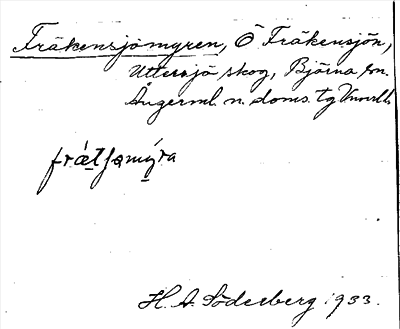 Fräkensjömyren, Ö Fräkensjön,
Uttersjö skog, Björna sn.
Ångerml. n. doms. tg Vnorrl.
frætʃamýra
H. A. Söderberg 1933.